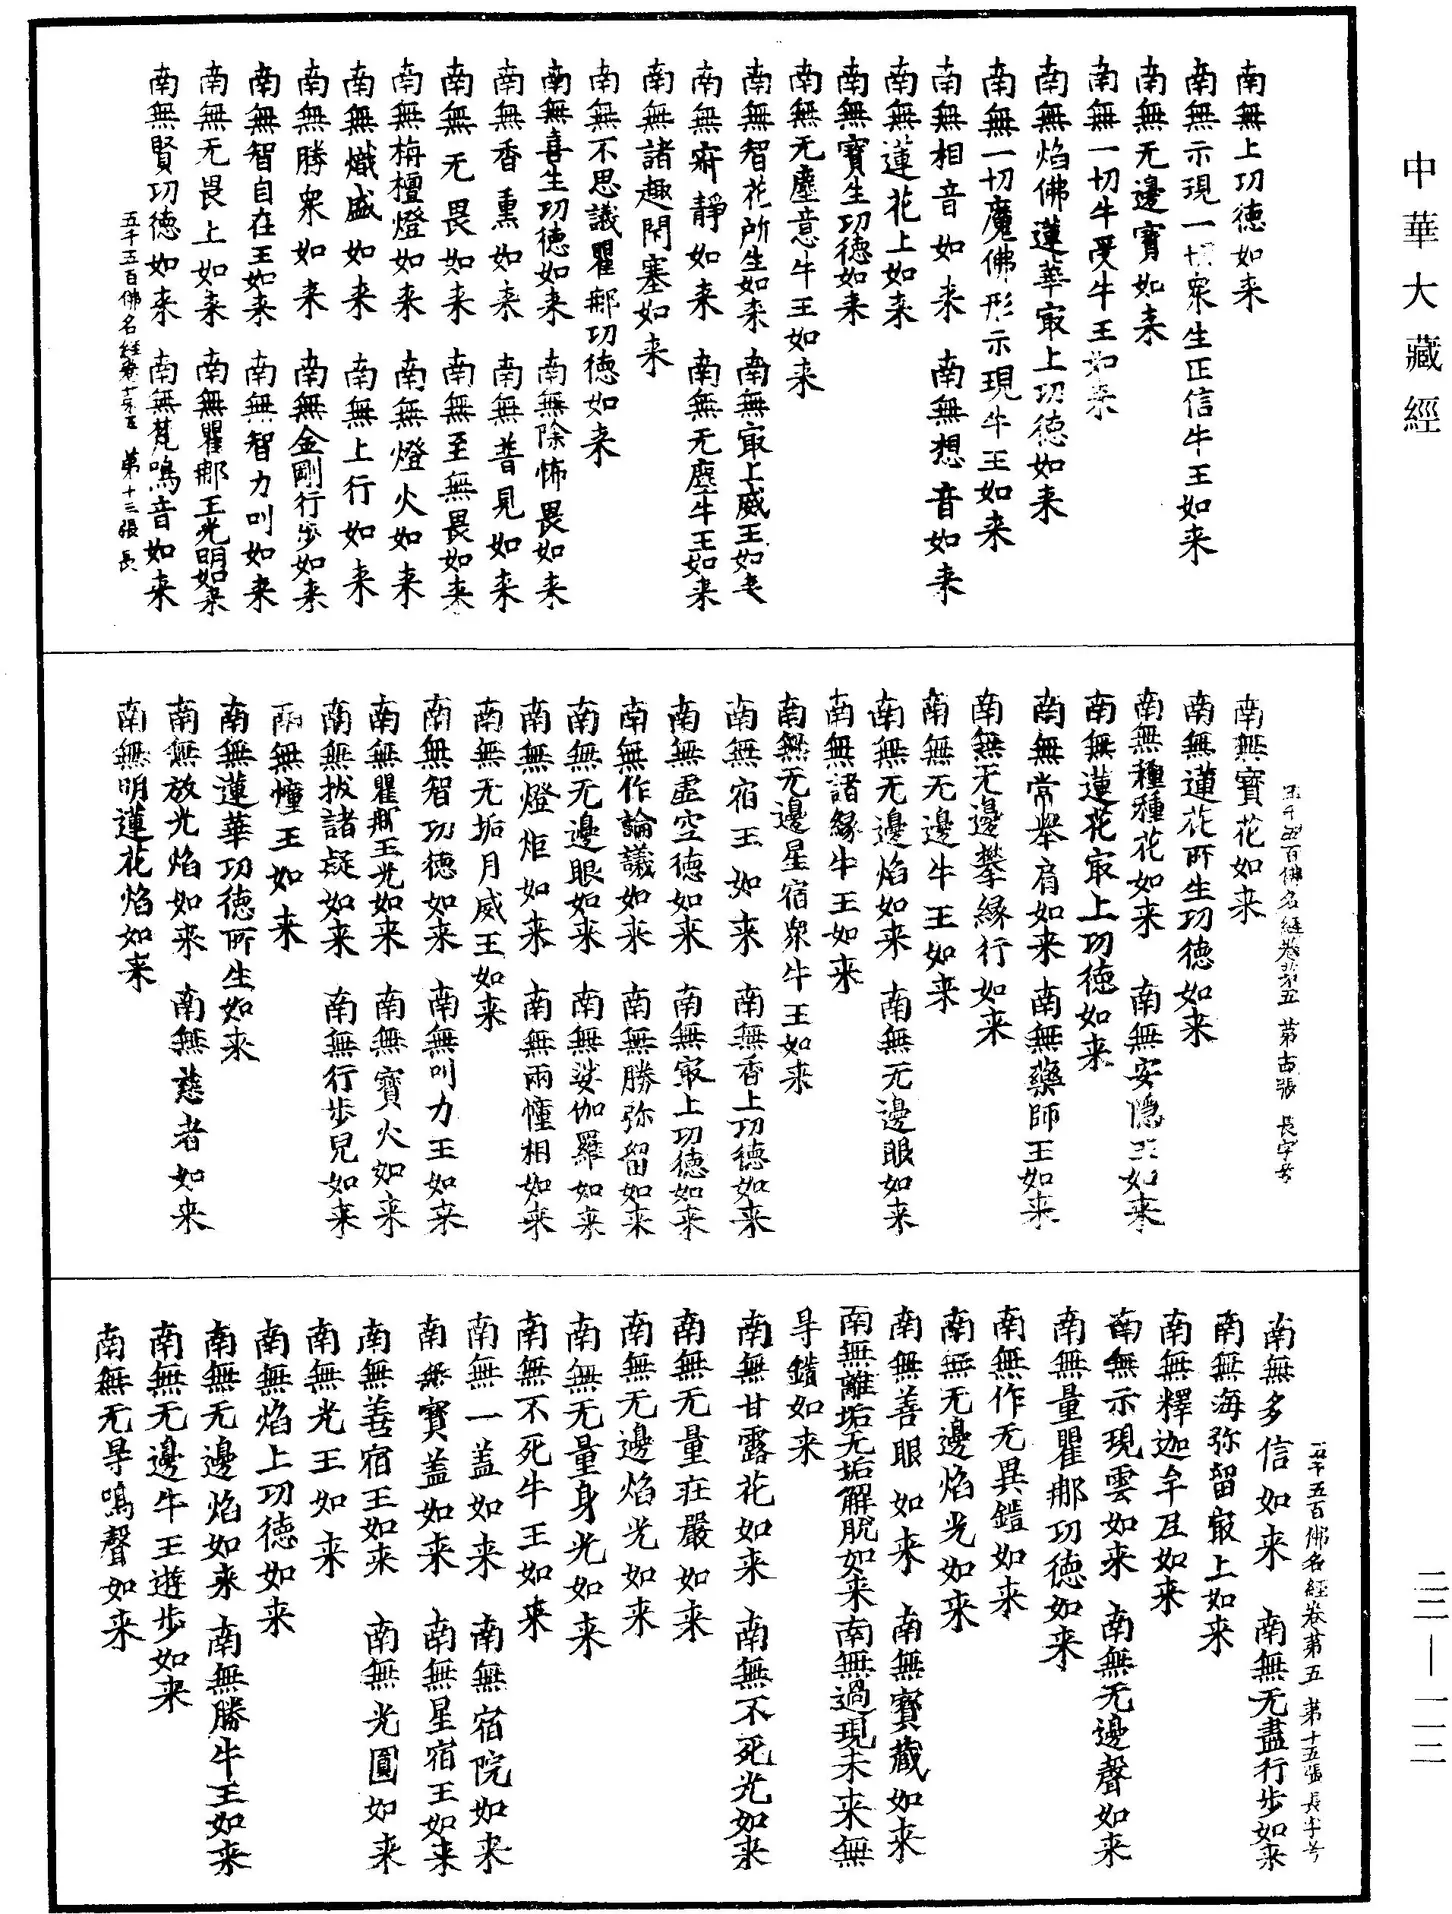 中華大藏經
南無上功德如来
南無示現一切衆生正信牛王如来
南無无邊寶如来
南無一切牛受牛王如来
南無焰佛蓮華㝡上功德如来
南無一切魔佛形示現牛王如来
南無相音如来 南無想音如来
南無蓮花上如来
南無寶生功德如来
南無无塵意牛王如来
南無智花所生如来 南無㝡上威王如来
南無寂靜如来 南無无塵牛王如来
南無諸趣閇塞如来
南無不思議瞿那功德如来
南無喜生功德如来 南無除怖畏如来
南無香熏如来 南無普見如来
南無无畏如来 南無至無畏如来
南無栴檀燈如来 南無燈火如来
南無熾盛如来 南無上行如来
南無勝衆如来 南無金剛行步如来
南無智自在王如来 南無智力叫如来
南無无畏上如来 南無瞿那王光明如来
南無賢功德如来 南無梵鳴音如来
五千五百佛名經卷第五 第十三張 長
五千五百佛名經卷第五 第古張 長字号
南無寶花如来
南無蓮花所生功德如来
南無種種花如来 南無安隱王如来
南無蓮花㝡上功德如来
南無常舉肩如来 南無藥師王如来
南無无邊攀緣行如来
南無无邊牛王如来
南無无邊焰如来 南無无邊眼如来
南無諸緣牛王如来
南無无邊星宿衆牛王如来
南無宿王如来 南無香上功德如来
南無虛空德如来 南無㝡上功德如来
南無作論議如来 南無勝弥留如来
南無无邊眼如来 南無娑伽羅如来
南無燈炬如来 南無雨幢相如来
南無无垢月威王如来
南無智功德如来 南無叫力王如来
南無瞿那王光如来 南無寶火如来
南無拔諸疑如来 南無行步兒如来
南無幢王如来
南無蓮華功德所生如来
南無放光焰如来 南無慈者如来
南無明蓮花焰如来
五千五百佛名經卷第五 第十五張 長字号
南無多信如来 南無无盡行步如来
南無海弥留㝡上如来
南無釋迦牟尼如来
南無示現雲如来 南無无邊聲如来
南無量瞿那功德如来
南無作无異鎧如来
南無无邊焰光如来
南無善眼如来 南無寶藏如来
南無離垢无垢解脫如来 南無過現未来無
㝵鎧如来
南無甘露花如来 南無不死光如来
南無无量莊嚴如来
南無无邊焰光如来
南無无量身光如来
南無不死牛王如来
南無一蓋如来 南無宿院如来
南無寶蓋如来 南無星宿王如来
南無善宿王如来 南無光圓如来
南無光王如来
南無焰上功德如来
南無无邊焰如来 南無勝牛王如来
南無无邊牛王遊步如来
南無无㝵鳴聲如来
二二—一一二